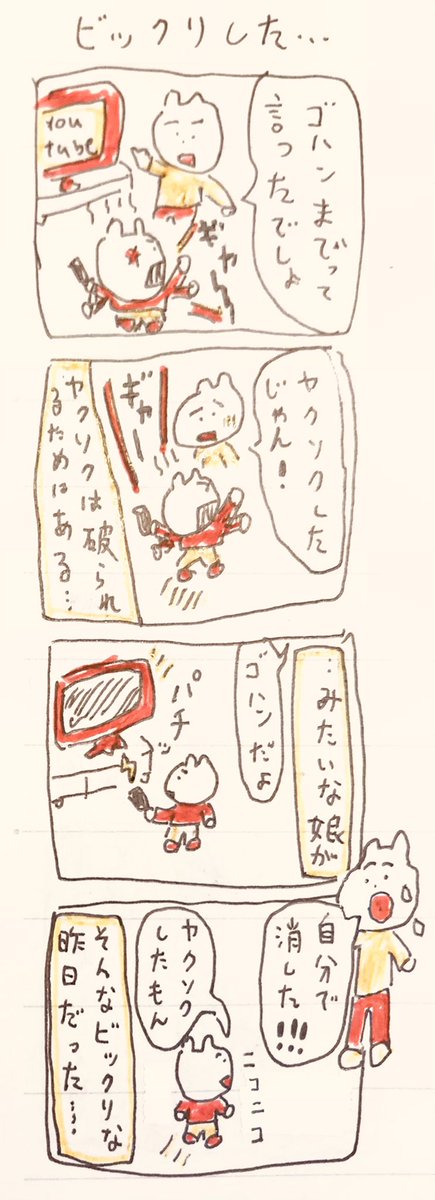 ビックリした…
ゴハンまでって
言ったでしょ
You
tube
ギャー
ヤクソクした
じゃん!
ギャー
ヤクソクは破られ
るためにある…
…みたいな娘が
ゴハンだよ
パチッ
自分で
消した!!!
ヤクソク
したもん
ニコニコ
そんなビックリな
昨日だった…